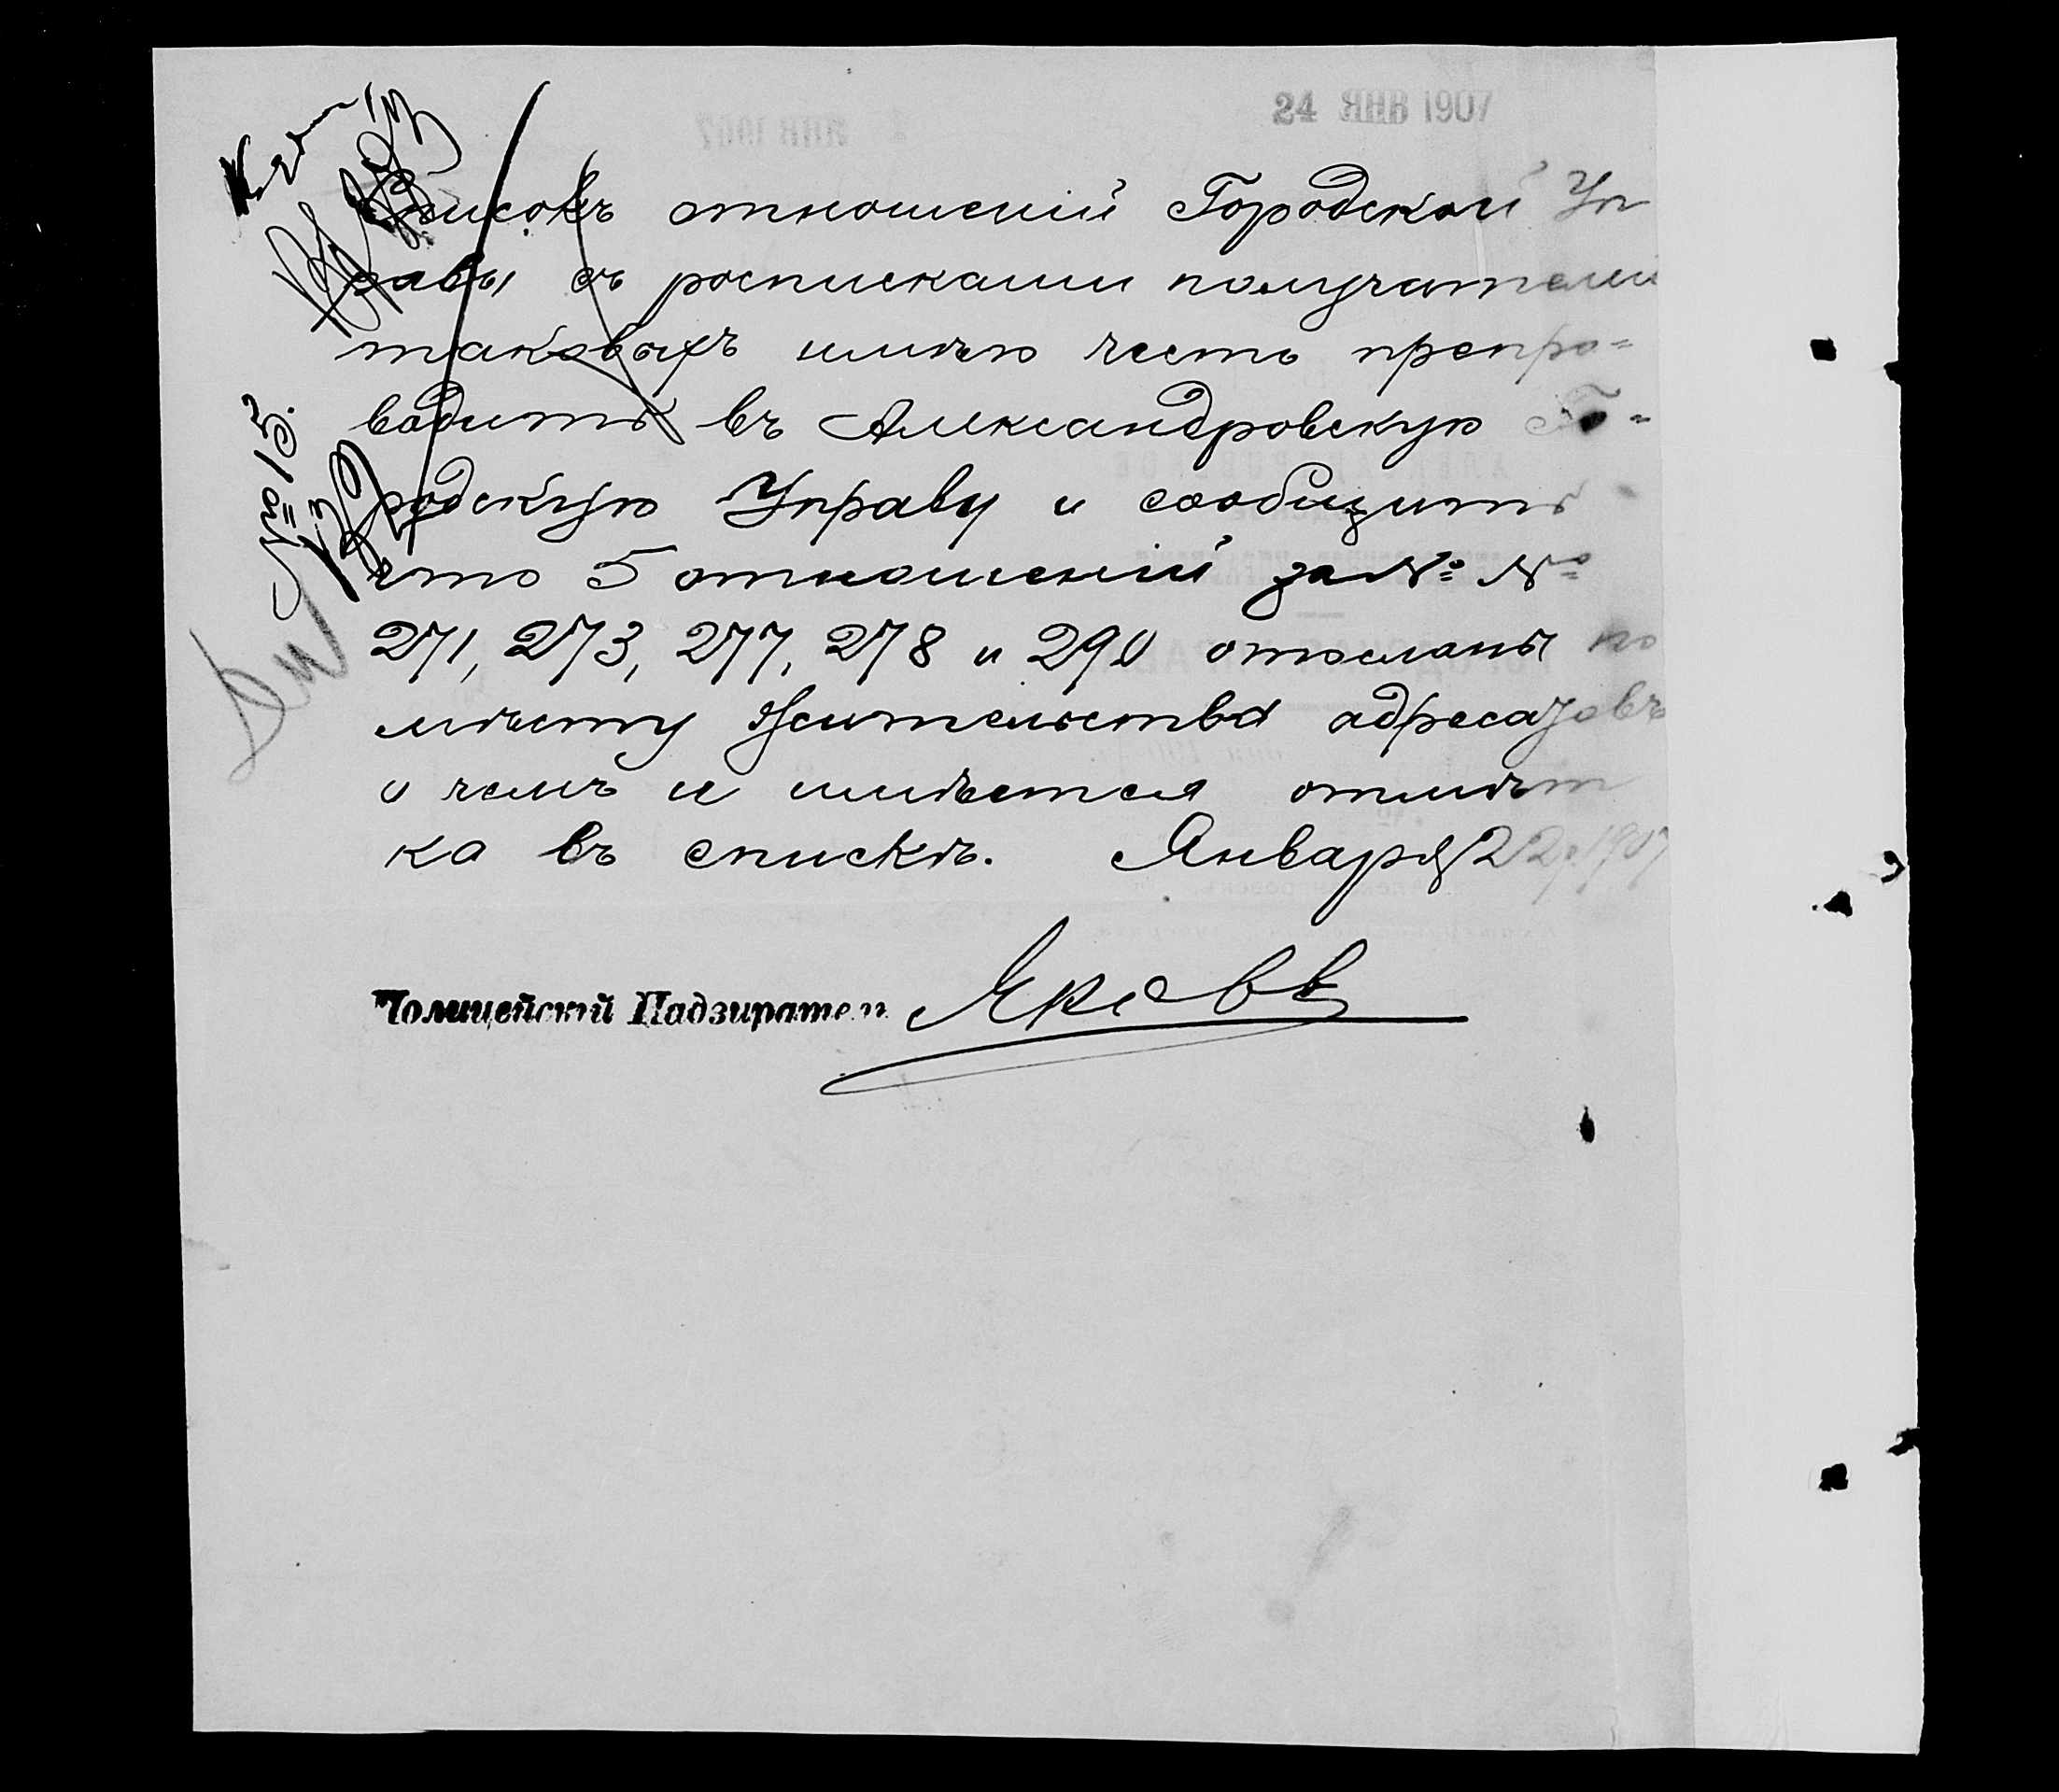 24 ЯНВ 1907
Списокъ отношеній Городской Уп
равы съ росписками получателей
таковыхъ имѣю честь препро=
водить въ Александровскую Го=
родскую Управу и сообщить
что 5 отношеній за №: №:
271, 273, 277, 278 и 290 отосланы по
мѣсту жительства адресатовъ
о чемъ и имѣется отмѣт
ка въ спискѣ. Января 22 д. 1907
Полицейскій Надзиратель
№ 15.